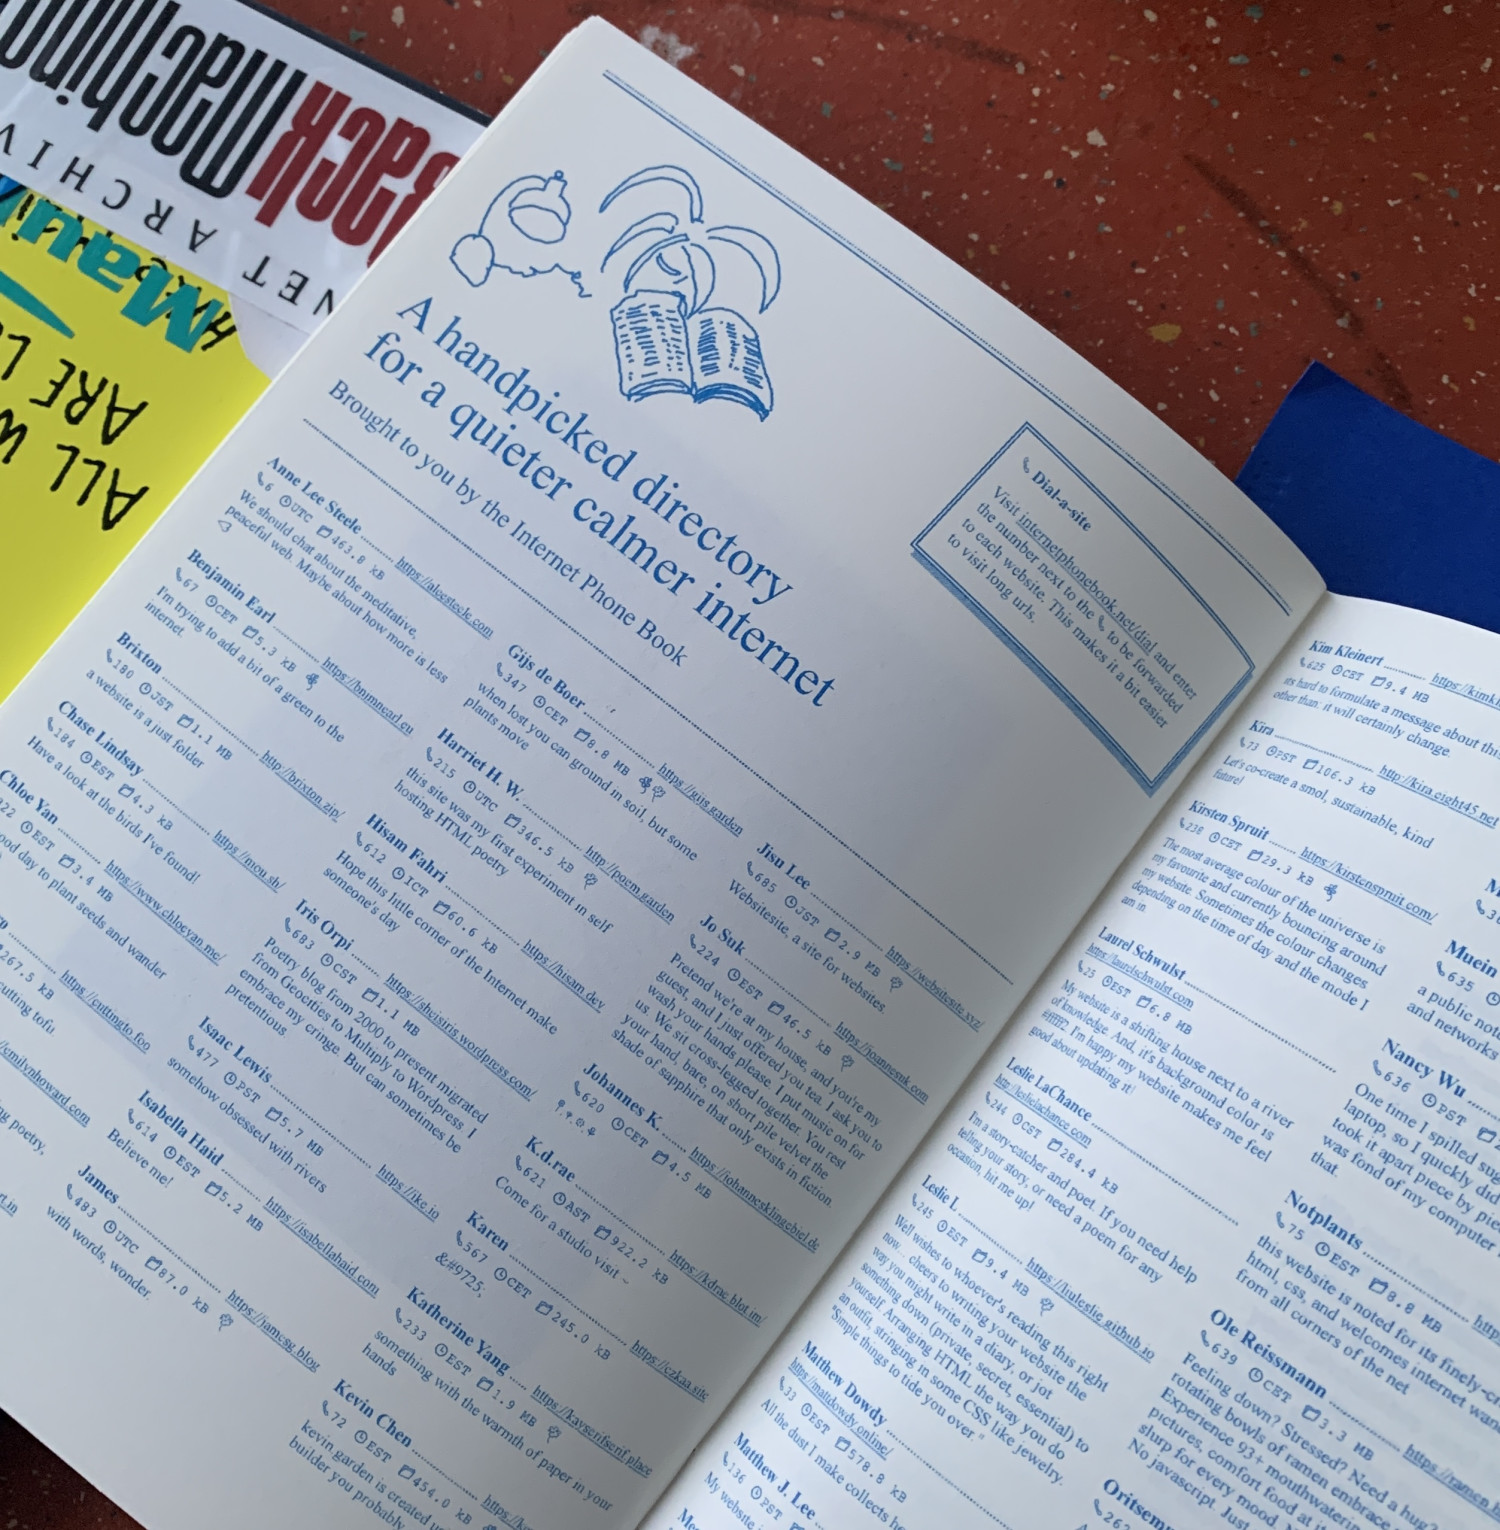 Back Machine
NET ARCHIV
Mau
ALL W
ARE L
A handpicked directory
for a quieter calmer internet
Brought to you by the Internet Phone Book
Dial-a-site
Visit internetphonebook.net/dial and enter
the number next to the 📞 to be forwarded
to each website. This makes it a bit easier
to visit long urls.
Anne Lee Steele https://aleesteele.com
6 UTC 463.8 kB
We should chat about the meditative,
peaceful web. Maybe about how more is less
<3
Benjamin Earl https://bnmnearl.eu
67 CET 5.3 kB
I'm trying to add a bit of a green to the
internet
Brixton http://brixton.zip/
180 JST 1.1 MB
a website is a just folder
Chase Lindsay https://mou.sh/
184 EST 4.3 kB
Have a look at the birds I've found!
Chloe Yan https://www.chloeyan.me/
22 EST 3.4 MB
ood day to plant seeds and wander
https://cuttingto.foo
267.5 kB
cutting tofu
/emilynhoward.com
ng poetry,
James https://jamesg.blog
493 UTC 87.0 kB
with words, wonder.
Gijs de Boer https://gijs.garden
347 CET 8.8 MB
when lost you can ground in soil, but some
plants move
Harriet H. W. http://poem.garden
215 UTC 346.5 kB
this site was my first experiment in self
hosting HTML poetry
Hisam Fahri https://hisam.dev
612 ICT 60.6 kB
Hope this little corner of the Internet make
someone's day
Iris Orpi https://sheisiris.wordpress.com/
683 CST 1.1 MB
Poetry blog from 2000 to present migrated
from Geocities to Multiply to Wordpress. I
embrace my cringe. But can sometimes be
pretentious.
Isaac Lewis https://ike.io
477 PST 5.7 MB
somehow obsessed with rivers
Isabella Haid https://isabellahaid.com
614 EST 5.2 MB
Believe me!
Jisu Lee https://websitesite.xyz/
685 JST 2.9 MB
Websitesite, a site for websites.
Jo Suk https://joannesuk.com
224 EST 46.5 kB
Pretend we're at my house, and you're my
guest, and I just offered you tea. I ask you to
wash your hands please. I put music on for
us. We sit cross-legged together. You rest
your hand, bare, on short pile velvet the
shade of sapphire that only exists in fiction.
Johannes K. https://johannesklingebiel.de
620 CET 4.5 MB
K.d.rae https://kdrae.blot.im/
621 AST 922.2 kB
Come for a studio visit ~
Karen https://czkaa.site
567 CET 245.0 kB
&#9725;
Katherine Yang https://kayserifserif.place
233 EST 1.9 MB
something with the warmth of paper in your
hands
Kevin Chen
72 EST 454.0 kB
kevin.garden is created
builder you probably
Kim Kleinert https://kimkl
625 CET 9.4 MB
its hard to formulate a message about this
other than: it will certainly change.
Kira http://kira.eight45.net
73 PST 106.3 kB
Let's co-create a smol, sustainable, kind
future!
Kirsten Spruit https://kirstenspruit.com/
238 CET 29.3 kB
The most average colour of the universe is
my favourite and currently bouncing around
my website. Sometimes the colour changes
depending on the time of day and the mode I
am in
Laurel Schwulst
https://laurelschwulst.com
25 EST 6.8 MB
My website is a shifting house next to a river
of knowledge. And, it's background color is
#ffffff2. I'm happy my website makes me feel
good about updating it!
Leslie LaChance
http://leslielachance.com
244 CET 284.4 kB
I'm a story-catcher and poet. If you need help
telling your story, or need a poem for any
occasion, hit me up!
Leslie L https://liuleslie.github.io
245 EST 9.4 MB
Well wishes to whoever's reading this right
now... cheers to writing your website the
way you might write in a diary, or jot
something down (private, secret, essential) to
yourself. Arranging HTML the way you do
an outfit, stringing in some CSS like jewelry.
"Simple things to tide you over."
Matthew Dowdy
https://mattdowdy.online/
33 EST 578.8 kB
All the dust I make collects he
Matthew J. Lee
136 PST
My website i
Muein
635
a public not
and networks
Nancy Wu
636 PST
One time I spilled sug
laptop, so I quickly did
took it apart piece by pie
was fond of my computer
that.
Notplants
75 EST 8.8 MB
this website is noted for its finely-c
html, css, and welcomes internet wan
from all corners of the net
Ole Reissmann https://ramen.h
639 CET 3.3 MB
Feeling down? Stressed? Need a hug?
rotating bowls of ramen embrace
Experience 93+ mouthwaterin
pictures, comfort food at i
slurp for every mood. N
No javascript. Just
Oritsem
262